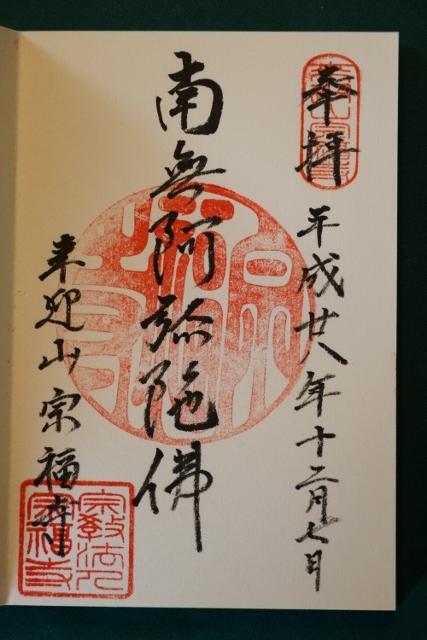 奉拝
平成廿八年十二月七日
南無阿弥陀佛
来迎山宗福寺
宗教法人
宗福寺